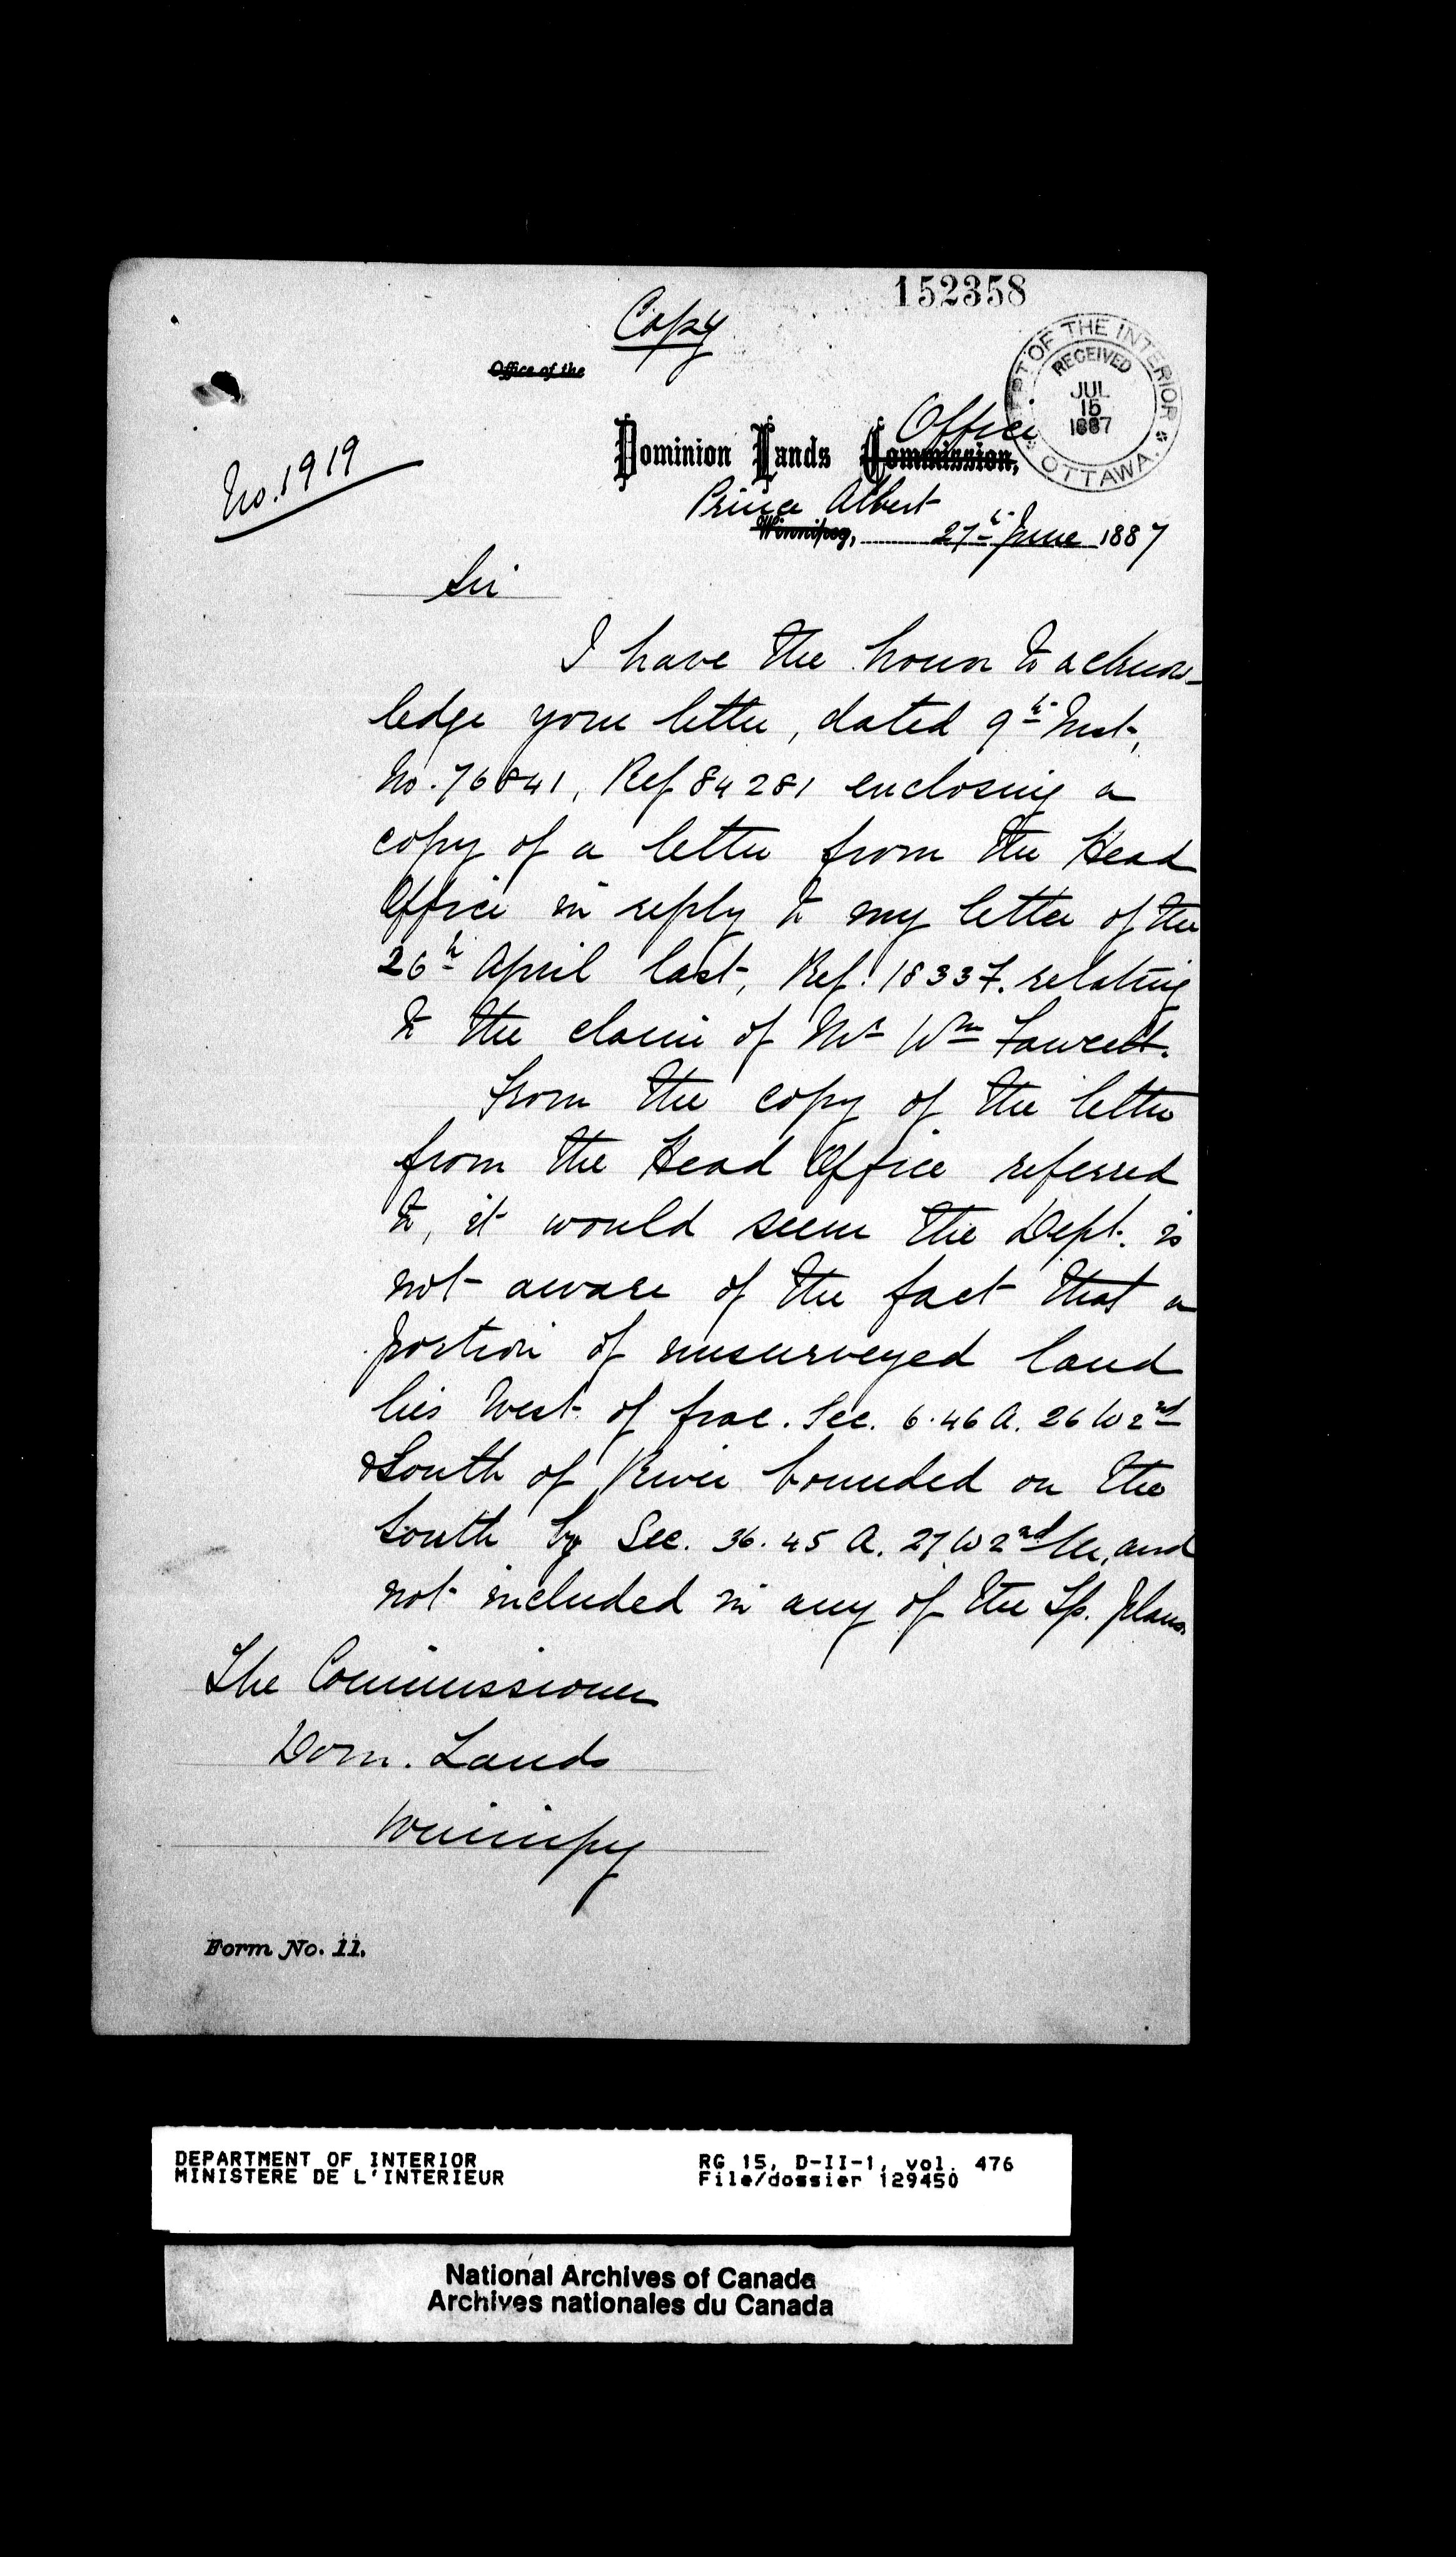 152358
Copy
Office of the
DEPT OF THE INTERIOR
RECEIVED
JUL
15
1887
OTTAWA.
Office
Dominion Lands Commission,
No. 1919
Prince Albert
Winnipeg, 27th June 1887
Sir
I have the honor to acknow-
ledge your letter, dated 9th Inst,
No. 76841, Ref 84281 enclosing a
copy of a letter from the Head
Office in reply to my letter of the
26th April last, Ref. 18337. relating
to the claim of Mr Wm Fawcett.
From the copy of the letter
from the Head Office referred
to, it would seem the Dept. is
not aware of the fact that a
portion of unsurveyed land
lies West of frac. Sec. 6.46 A. 26 W 2nd
& South of River bounded on the
South by Sec. 36. 45 A. 27 W 2nd M, and
not included in any of the Tp. plans.
The Commissioner
Dom. Lands
Winnipeg
Form No. 11.
DEPARTMENT OF INTERIOR RG 15, D-II-1, vol. 476
MINISTERE DE L'INTERIEUR File/dossier 129450
National Archives of Canada
Archives nationales du Canada